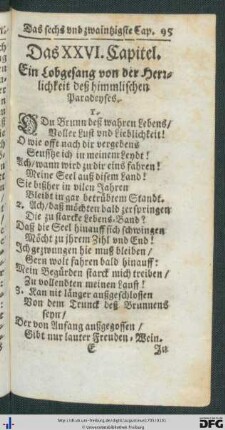 Das sechs und zwaintzigste Cap. 95
Das XXVI. Capitel.
Ein Lobgesang von der Herr⸗
lichkeit deß himmlischen
Paradeyses.
1.
O Du Brunn deß wahren Lebens/
Voller Lust vnd Lieblichkeit!
O wie offt nach dir vergebens
Seufftze ich in meinem Leydt!
Ach/ wann wird zu dir eins fahren!
Meine Seel auß disem Land!
Sie bißher in vilen Jahren
Bleibt in gar betrübtem Standt.
2. Ach/ daß möchten bald zerspringen
Die zu starcke Lebens-Band?
Daß die Seel hinauff sich schwingen
Möcht zu jhrem Zihl vnd End!
Ich gezwungen hie muß bleiben/
Gern wolt fahren bald hinauff:
Mein Begürden starck mich treiben/
Zu vollendten meinen Lauff!
3. Kan nit länger außgeschlossen
Von dem Trunck deß Brunnens
seyn/
Der von Anfang außgegossen/
Gibt nur lauter Freuden-Wein.
E Zu
DFG